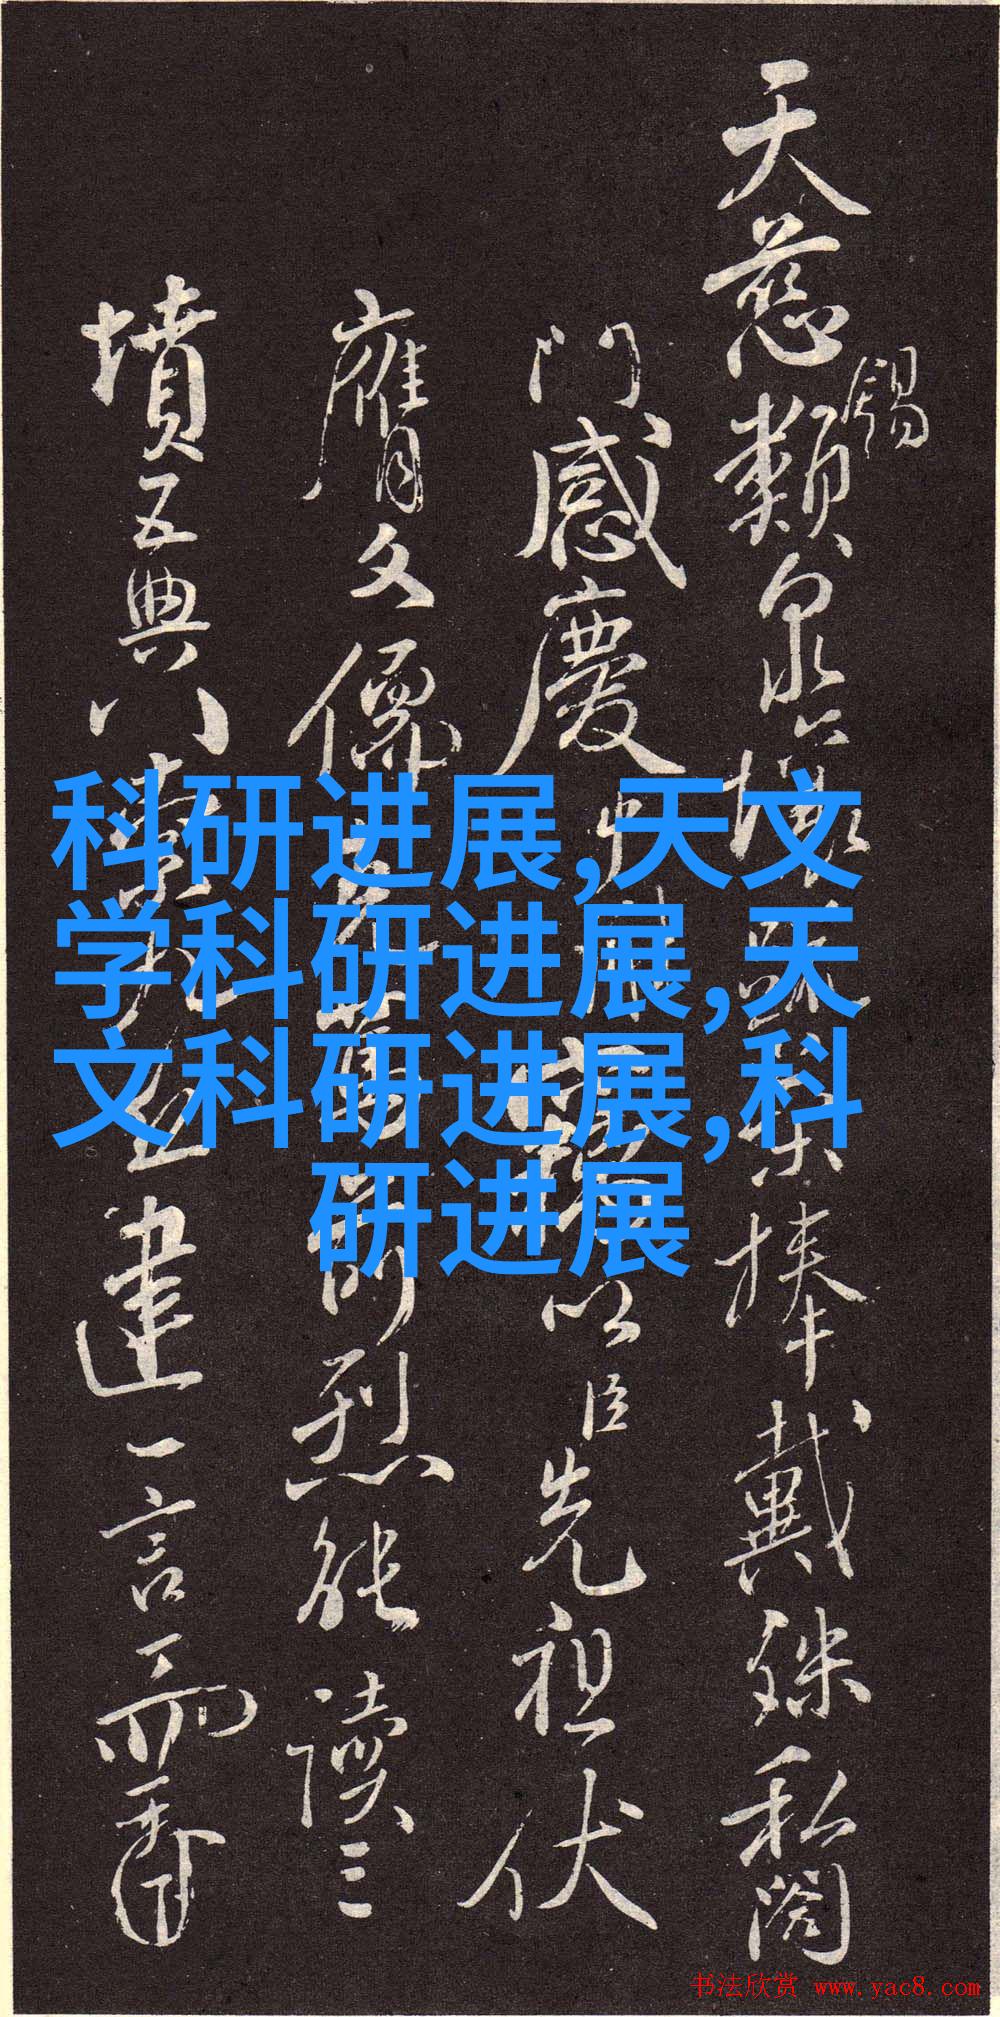 天慈錫類泉
捧戴殊私闔
門感慶
以臣先祖伏
膺文儒
烈能讀三
墳五典八索九丘建一言
科研进展,天文
学科研进展,天
文科研进展,科
研进展
书法欣赏 www.yac8.com